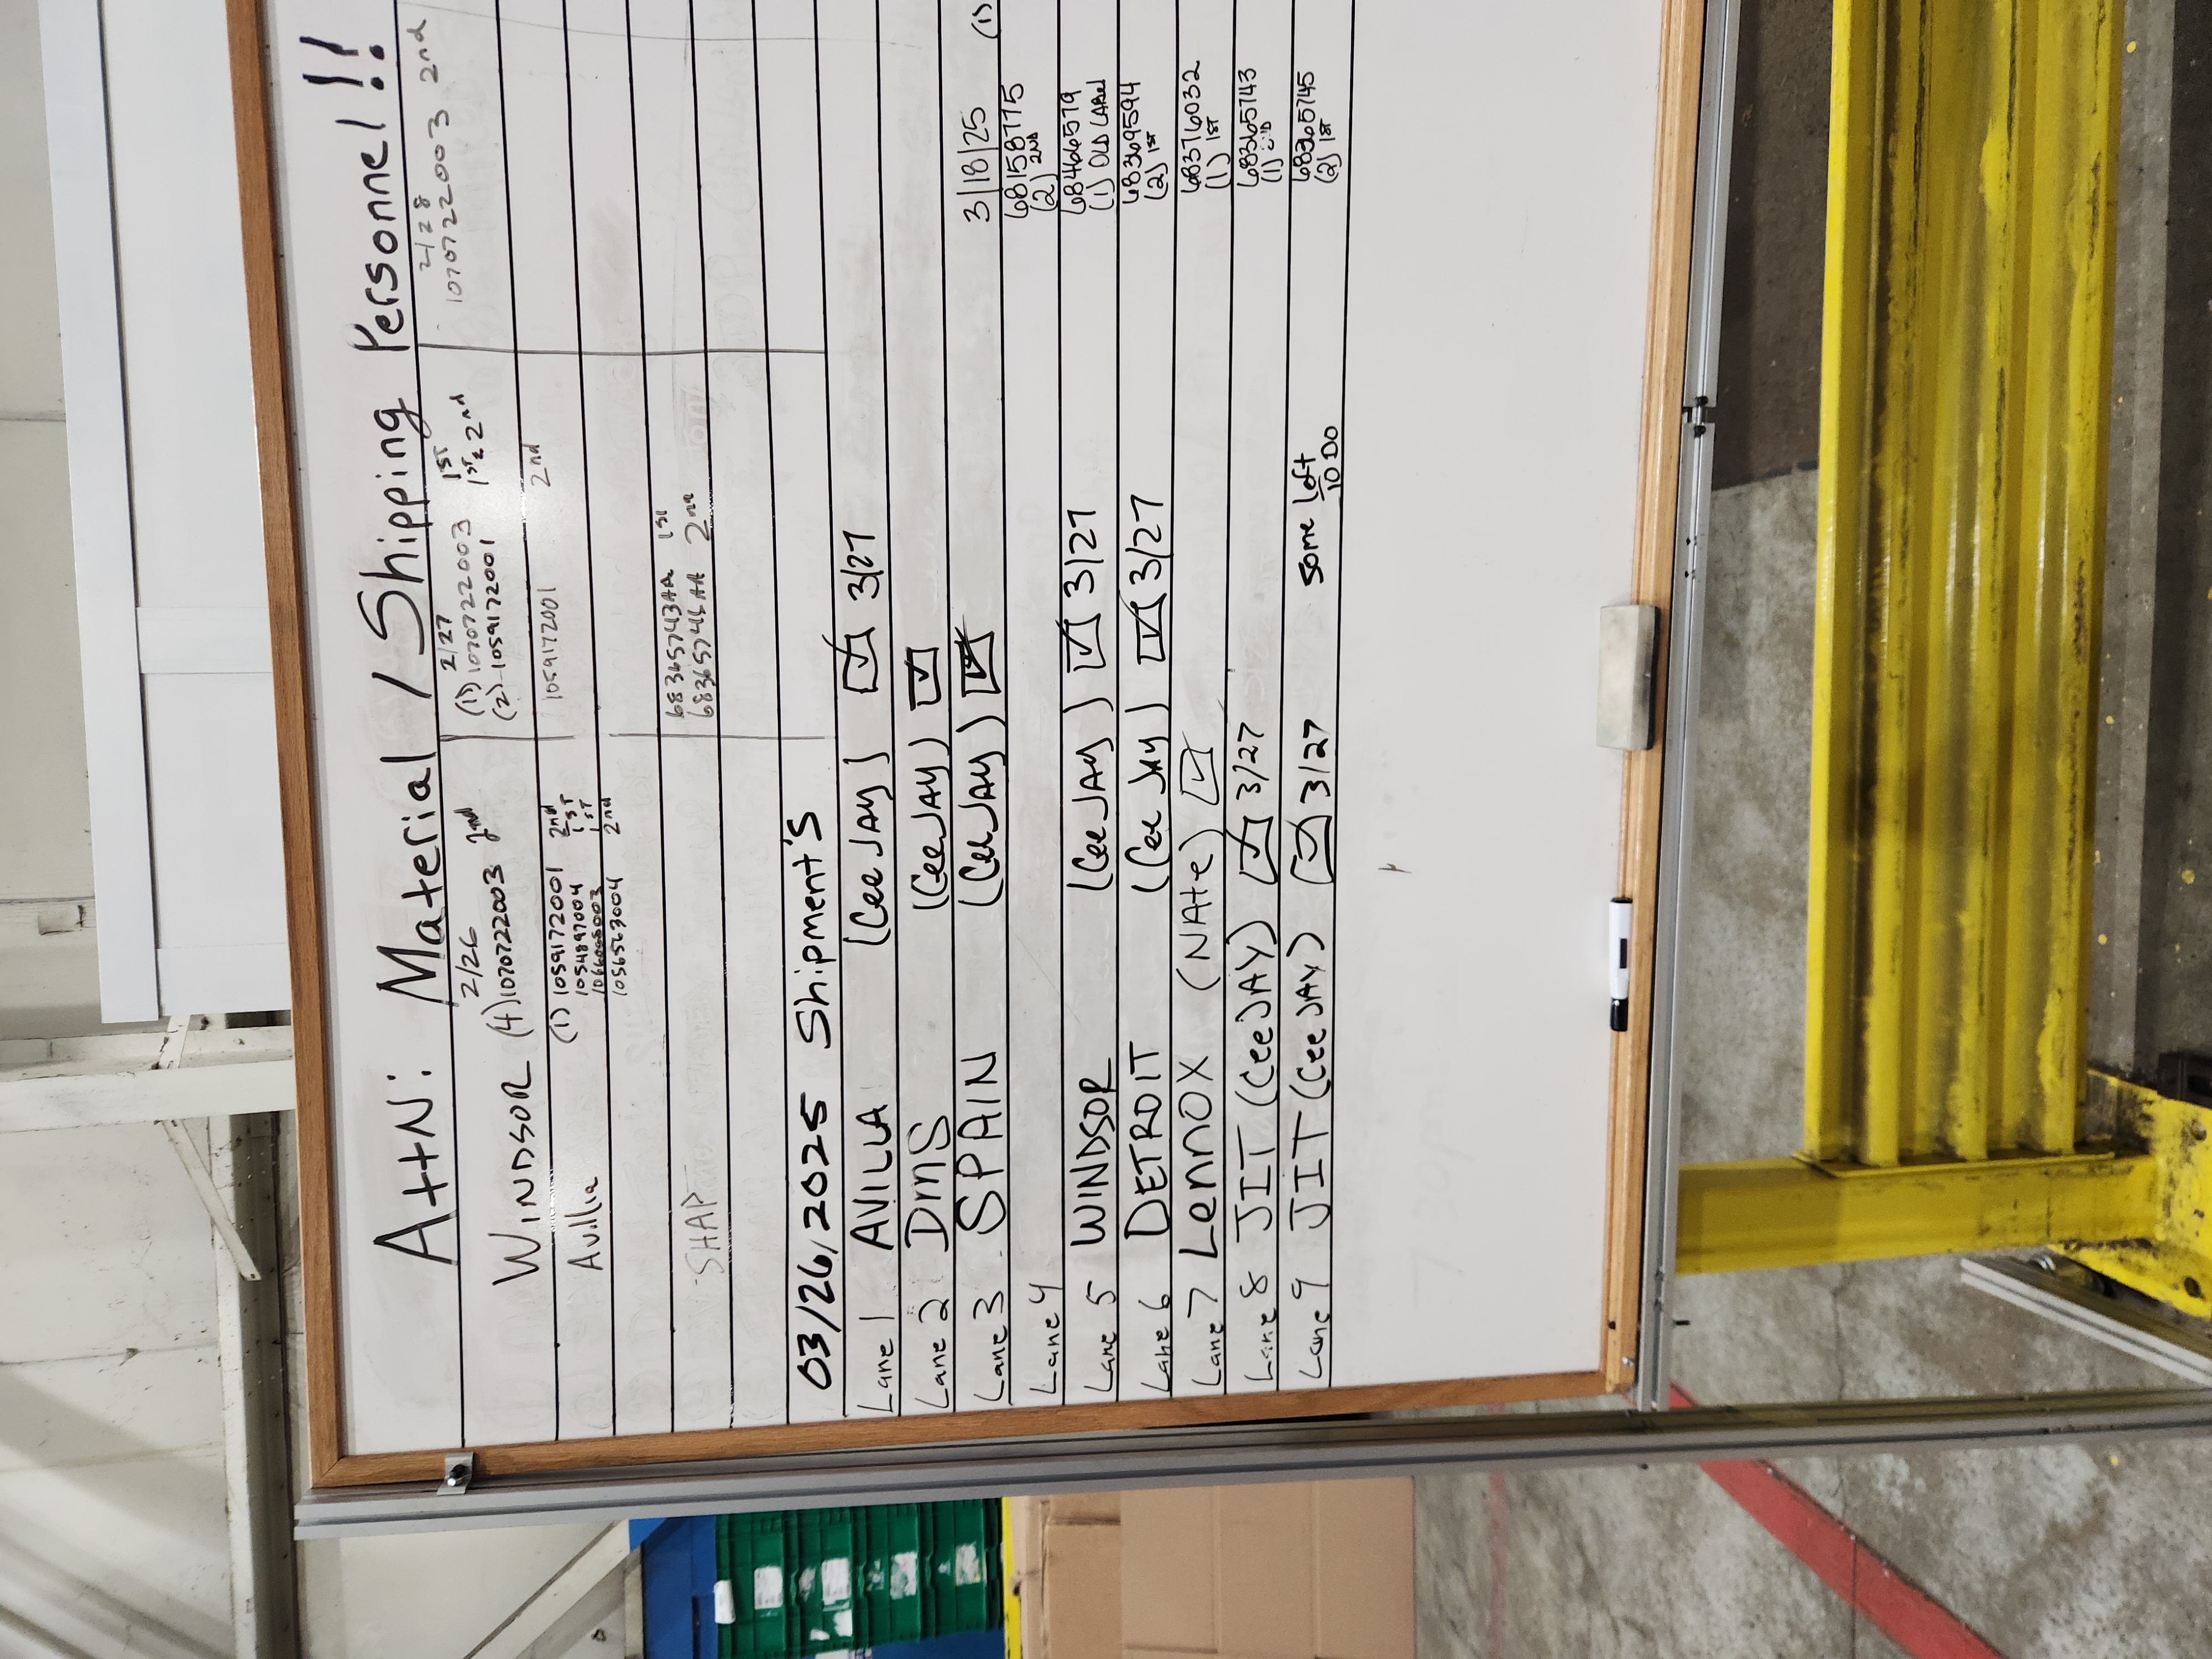 Attn: Material / Shipping Personnel!!
2/26 2/27 2/28
WINDSOR (4) 1070722003 2nd (1) 1070722003 1ST 1070722003 2nd
(2) 1059172001 1ST 2nd
Avilla (1) 1059172001 2nd 1059172001 2nd
1054897004 1ST
1ST
1056563004 2nd
SHAP 68365743AA 1ST
2nd
03/26/2025 Shipment's
Lane 1 AVILLA (CeeJAY) ☑ 3/27
Lane 2 DMS (CeeJAY) ☑
Lane 3 SPAIN (CeeJAY) ☑ 3/18/25 (1)
Lane 4 68158771S
(2) 2nd
Lane 5 WINDSOR (CeeJAY) ☑ 3/27 68466579
(1) OLD LABel
Lane 6 DETROIT (CeeJAY) ☑ 3/27 68369594
(2) 1ST
Lane 7 LennOX (NAte) ☑ 68376032
(1) 1ST
Lane 8 JIT (CeeJAY) ☑ 3/27 68365743
(1)
Lane 9 JIT (CeeJAY) ☑ 3/27 some left 68365745
to Do (2) 1ST